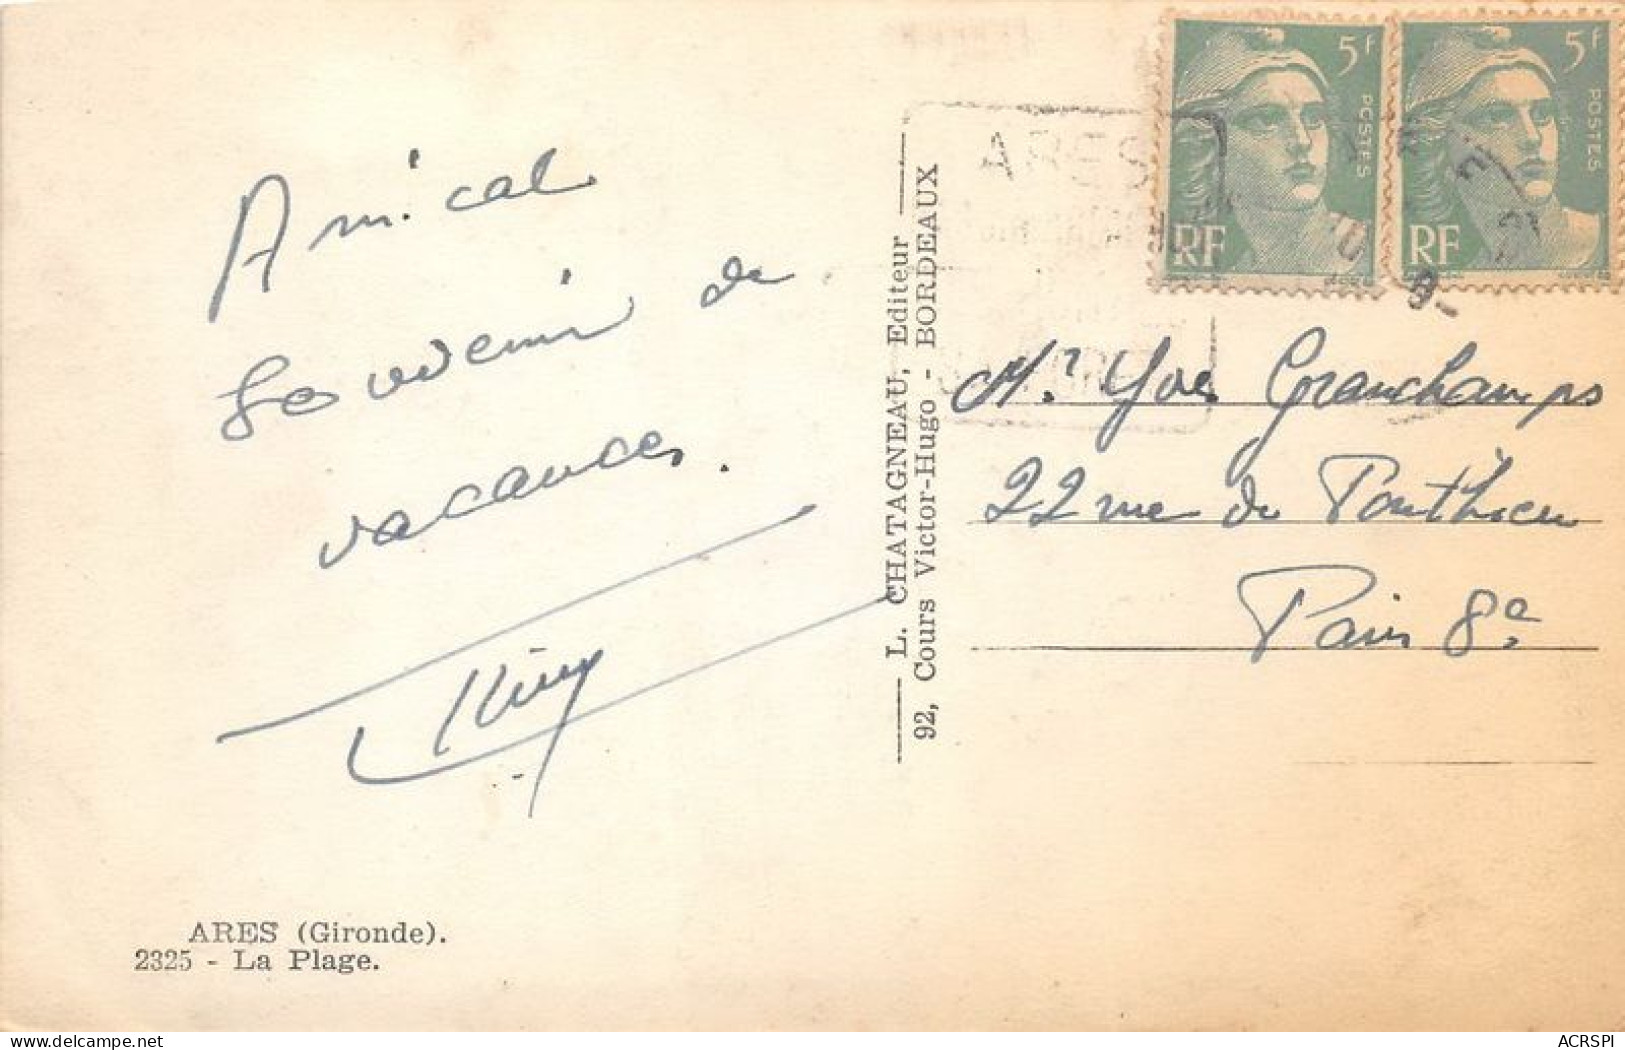 Amical
Souvenir de
vacances.
ARES (Gironde).
2325 - La Plage.
L. CHATAGNEAU, Editeur
92, Cours Victor-Hugo - BORDEAUX
5F
POSTES
RF
5F
POSTES
RF
ARES
Mr Yves Granchamps
22 rue du Ponthieu
Paris 8e
ACRSPI